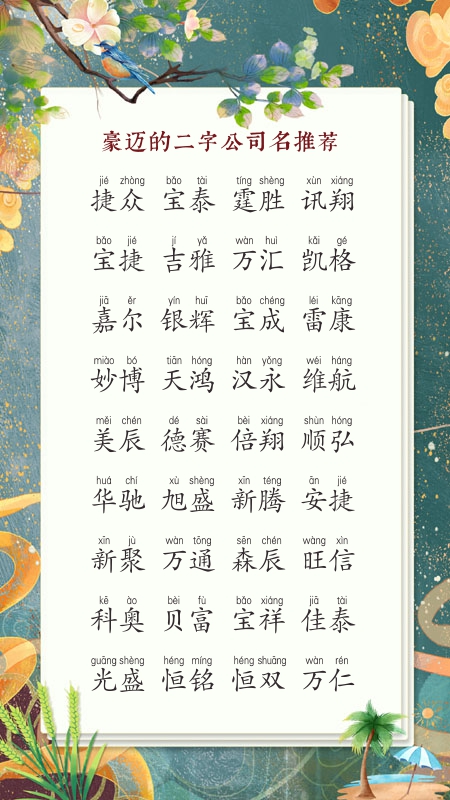 豪迈的二字公司名推荐
jié zhòng bǎo tài tíng shèng xùn xiáng
捷众 宝泰 霆胜 讯翔
bǎo jié jí yǎ wàn huì kǎi gé
宝捷 吉雅 万汇 凯格
jiā ěr yín huī bǎo chéng léi kāng
嘉尔 银辉 宝成 雷康
miào bó tiān hóng hàn yǒng wéi háng
妙博 天鸿 汉永 维航
měi chén dé sài bèi xiáng shùn hóng
美辰 德赛 倍翔 顺弘
huá chí xù shèng xīn téng ān jié
华驰 旭盛 新腾 安捷
xīn jù wàn tōng sēn chén wàng xìn
新聚 万通 森辰 旺信
kē ào bèi fù bǎo xiáng jiā tài
科奥 贝富 宝祥 佳泰
guāng shèng héng míng héng shuāng wàn rén
光盛 恒铭 恒双 万仁